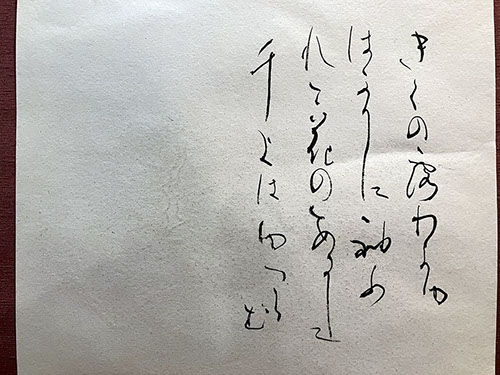 きくの露わかゆ
はかりに袖ふ
れて花のあるしに
千よはゆつらむ